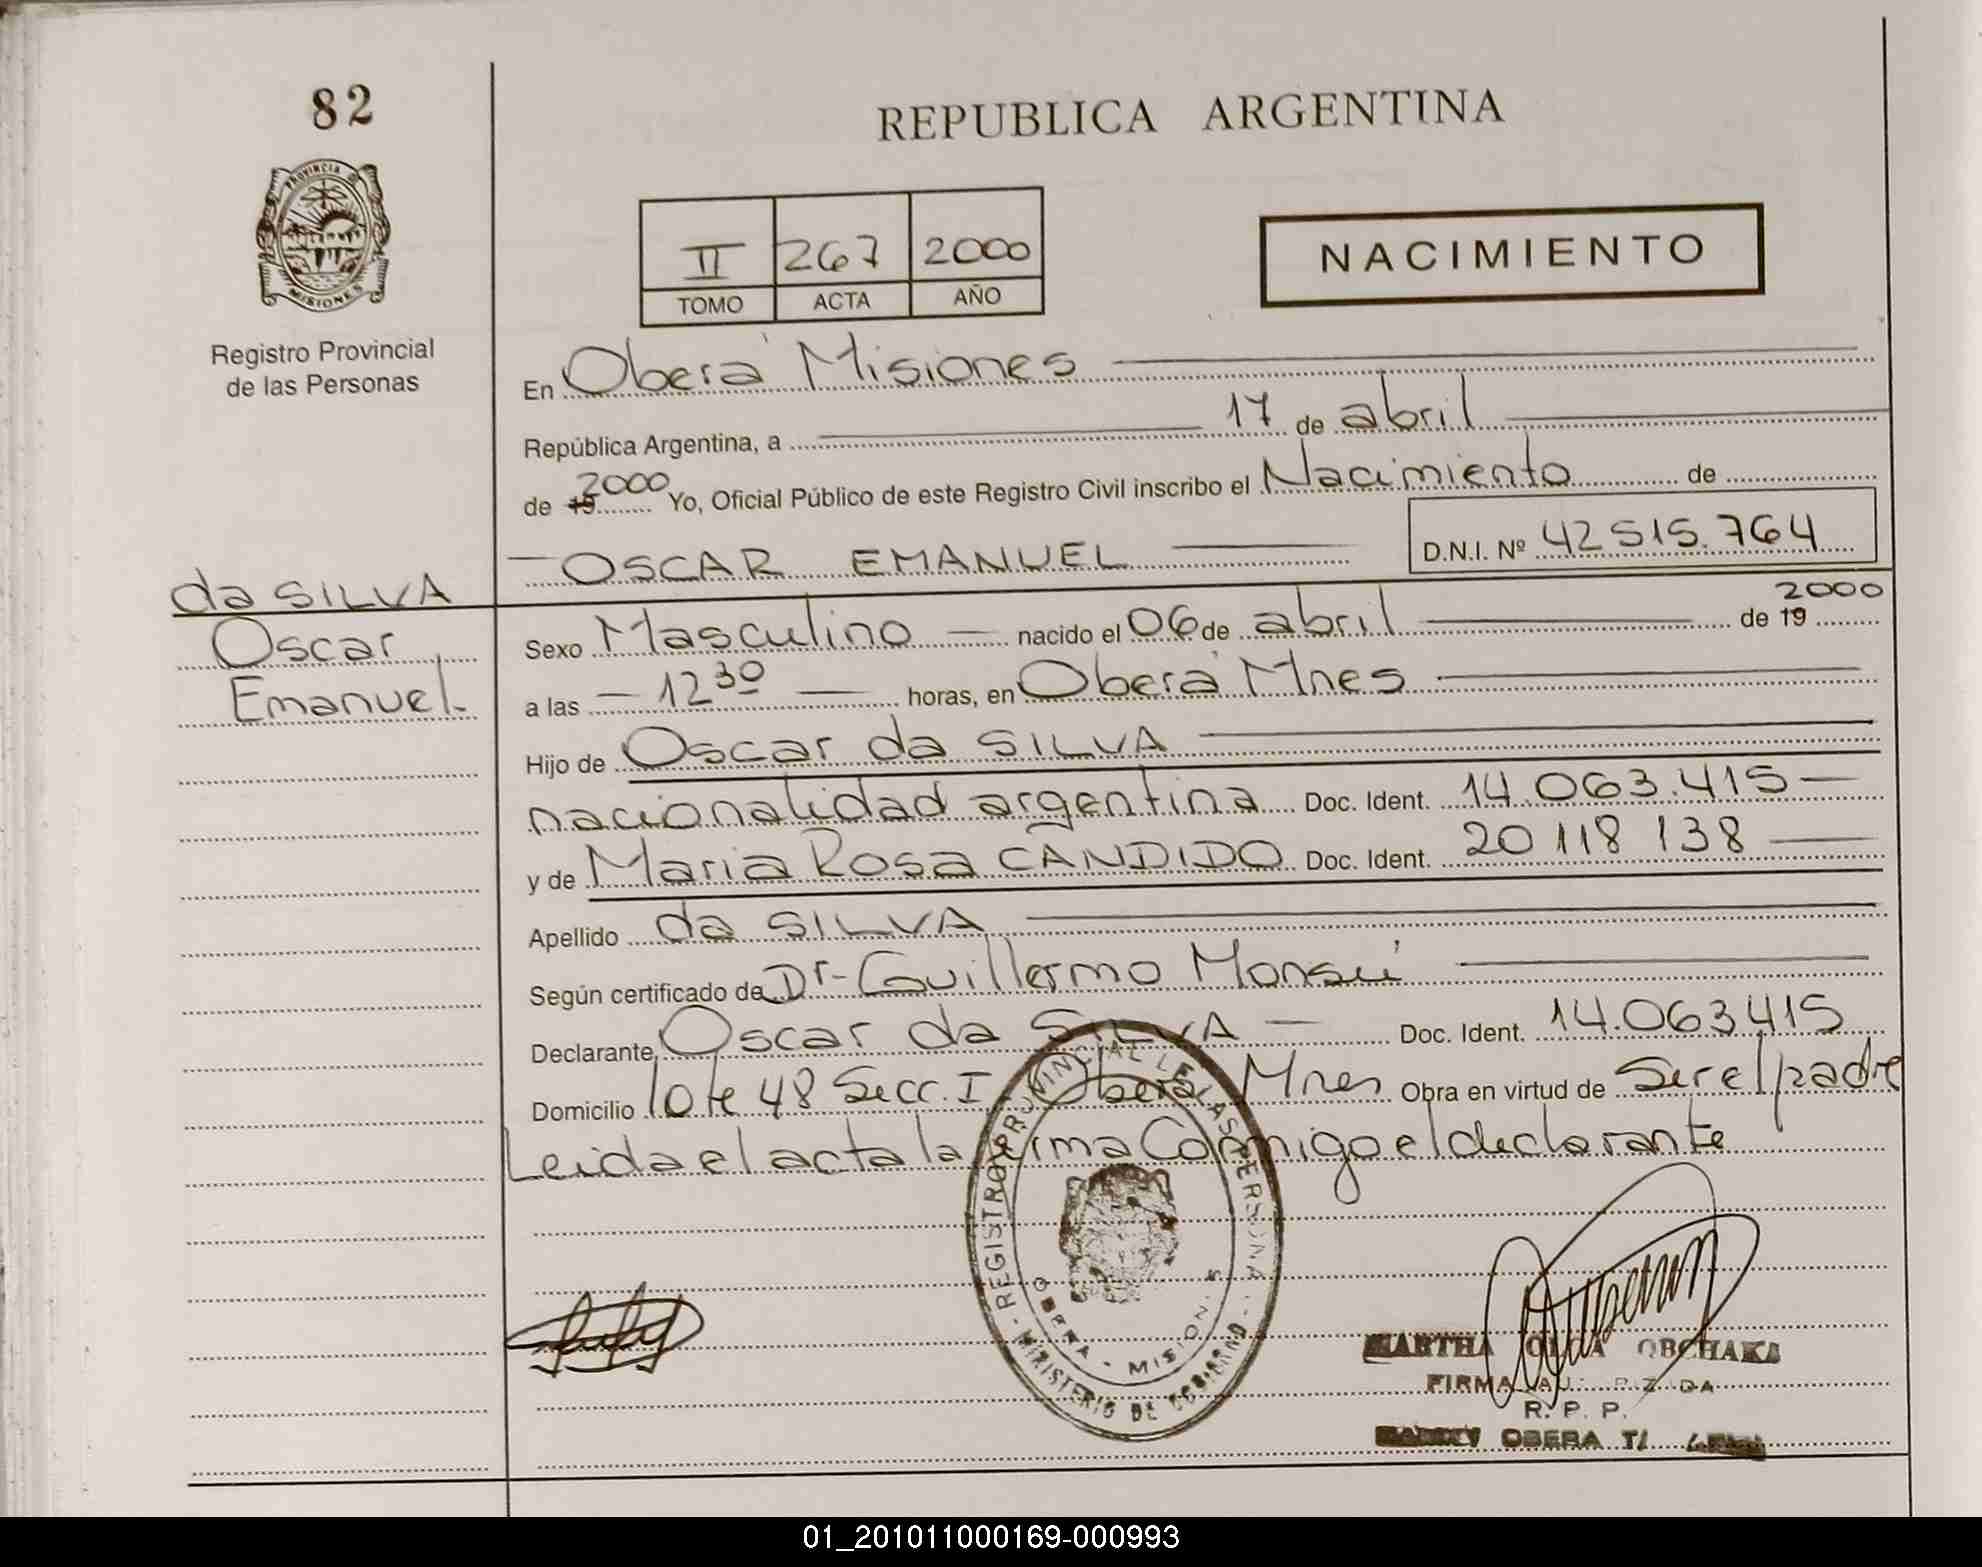 82
PROVINCIA
MISIONES
Registro Provincial
de las Personas
REPUBLICA ARGENTINA
II 267 2000
TOMO ACTA AÑO
NACIMIENTO
En Oberá Misiones
República Argentina, a 17 de abril
de 19 2000 Yo, Oficial Público de este Registro Civil inscribo el Nacimiento de
OSCAR EMANUEL D.N.I. Nº 42 515.764
da SILVA
Oscar
Emanuel
Sexo Masculino nacido el 06 de abril de 19 2000
a las 12 30 horas, en Oberá Mnes
Hijo de Oscar da SILVA
nacionalidad argentina Doc. Ident. 14.063.415
y de Maria Rosa CANDIDO Doc. Ident. 20 118 138
Apellido da SILVA
Según certificado de Dr. Guillermo Monsú
Declarante Oscar da SILVA Doc. Ident. 14.063415
Domicilio lote 48 Secc. I Oberá Mnes Obra en virtud de Ser el padre
Leida el acta la firma Conmigo el declarante
REGISTRO PROVINCIAL DE LAS PERSONAS
OBERA - MISIONES
MINISTERIO DE GOBIERNO
MARTHA OLGA
FIRMA AUTORIZADA
R. P. P.
OBERA
01_201011000169-000993